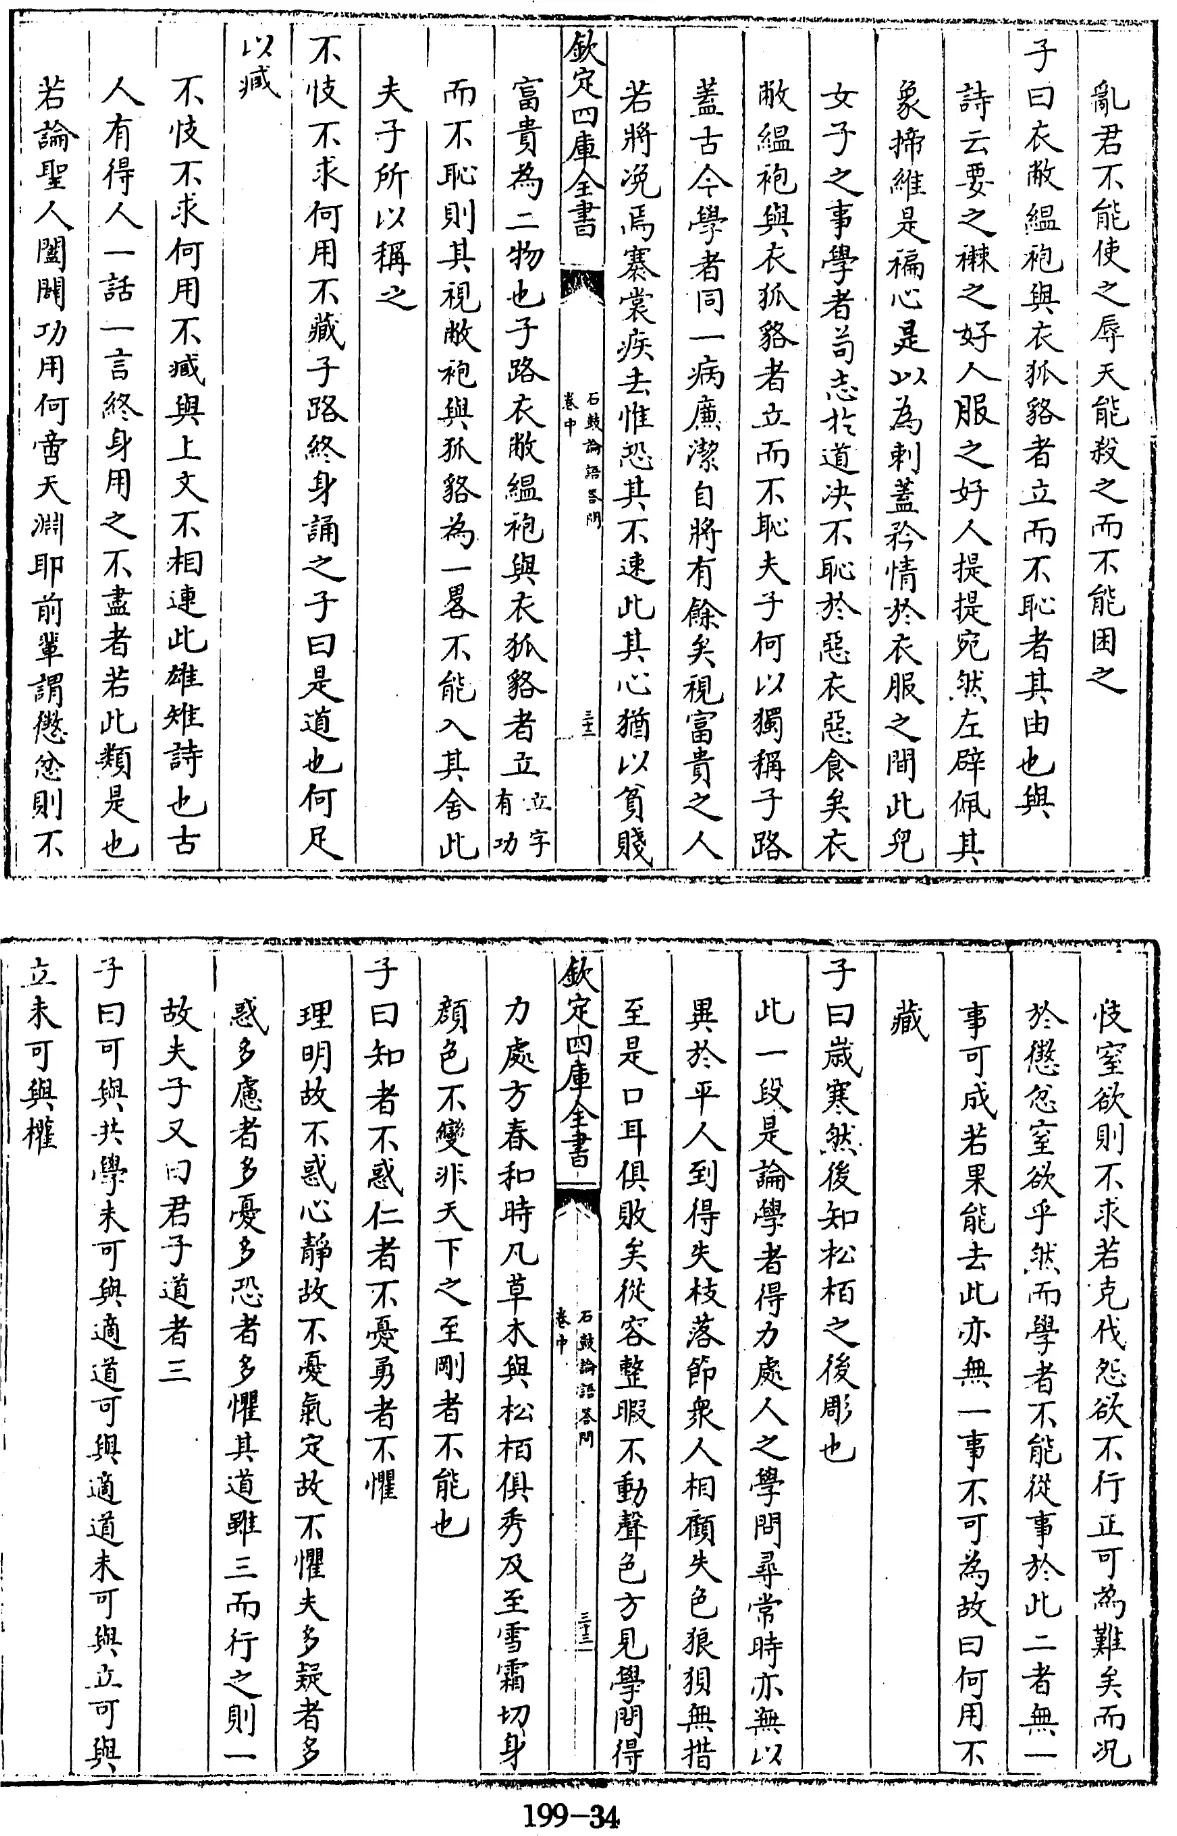 亂君不能使之辱天能殺之而不能困之
子曰衣敝緼袍與衣狐貉者立而不恥者其由也與
詩云要之襋之好人服之好人提提宛然左辟佩其
象揥維是褊心是以為刺蓋矜情於衣服之間此兒
女子之事學者苟志於道决不恥於惡衣惡食矣衣
敝緼袍與衣狐貉者立而不恥夫子何以獨稱子路
蓋古今學者同一病廉潔自將有餘矣視富貴之人
若將浼焉褰裳疾去惟恐其不速此其心猶以貧賤
欽定四庫全書
石鼓論語答問
卷中
三十二
富貴為二物也子路衣敝緼袍與衣狐貉者立立字有功
而不恥則其視敝袍與狐貉為一畧不能入其舍此
夫子所以稱之
不忮不求何用不臧子路終身誦之子曰是道也何足
以臧
不忮不求何用不臧與上文不相連此雄雉詩也古
人有得人一話一言終身用之不盡者若此類是也
若論聖人闔闢功用何啻天淵耶前輩謂懲忿則不
忮窒欲則不求若克伐怨欲不行正可為難矣而况
於懲忿窒欲乎然而學者不能從事於此二者無一
事可成若果能去此亦無一事不可為故曰何用不
臧
子曰嵗寒然後知松栢之後彫也
此一段是論學者得力處人之學問尋常時亦無以
異於平人到得失枝落節衆人相顧失色狼狽無措
至是口耳俱敗矣從容整暇不動聲色方見學問得
欽定四庫全書
石鼓論語答問
卷中
三十三
力處方春和時凡草木與松栢俱秀及至雪霜切身
顔色不變非天下之至剛者不能也
子曰知者不惑仁者不憂勇者不懼
理明故不惑心靜故不憂氣定故不懼夫多疑者多
惑多慮者多憂多恐者多懼其道雖三而行之則一
故夫子又曰君子道者三
子曰可與共學未可與適道可與適道未可與立可與
立未可與權
199-34